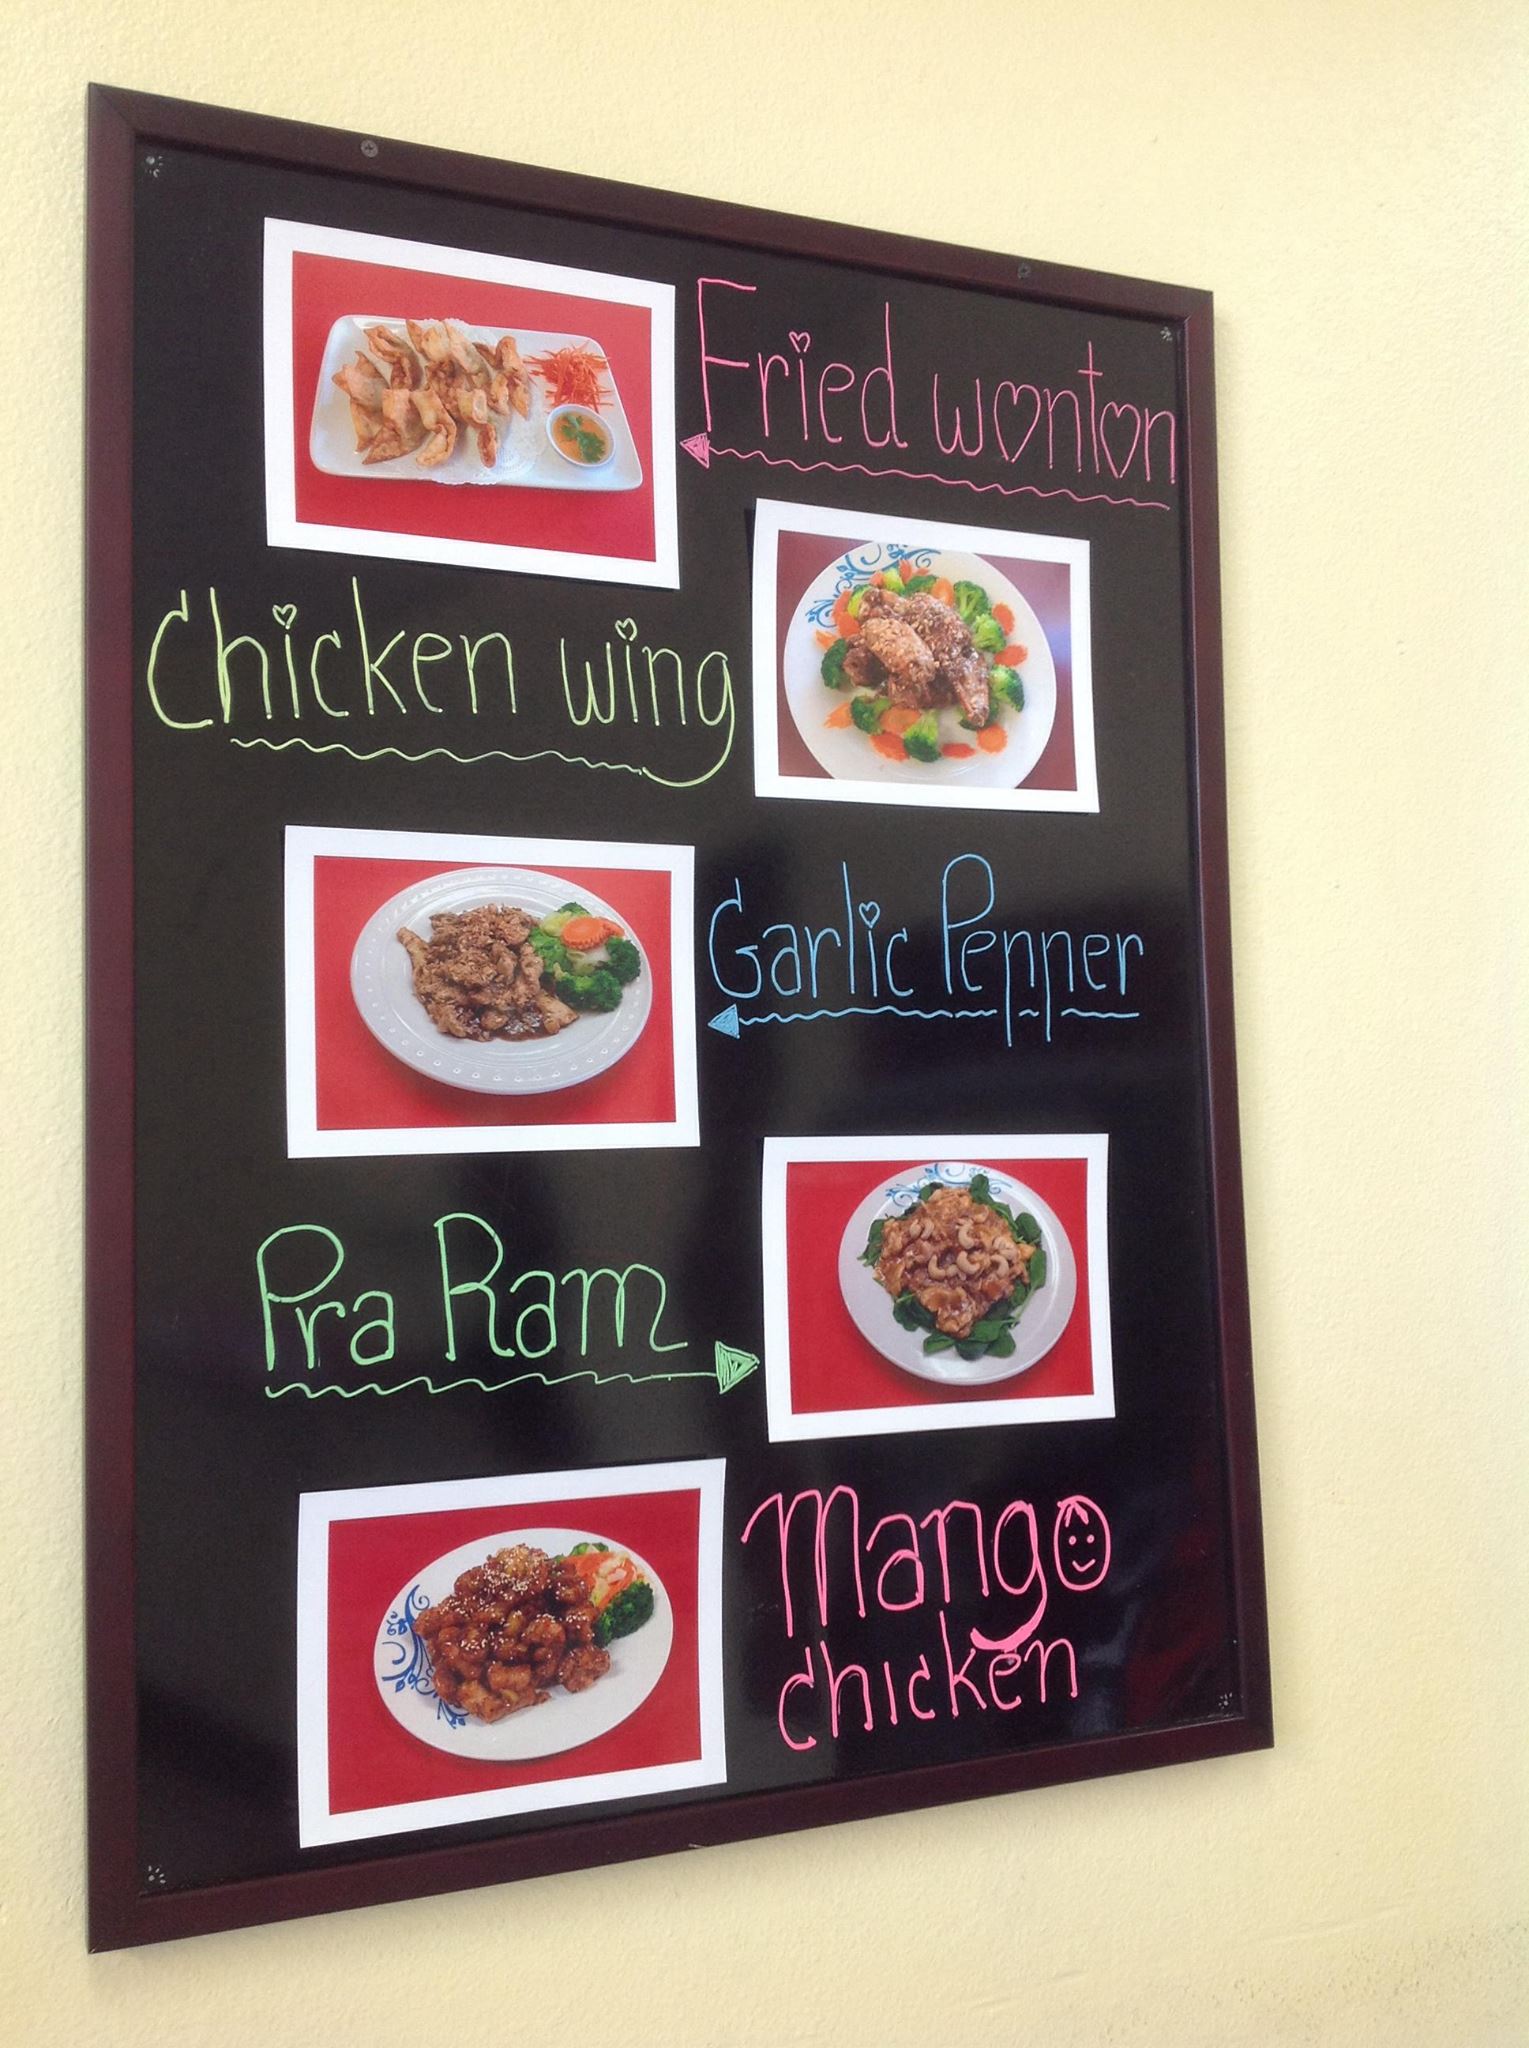 Fried wonton
Chicken wing
Garlic Pepper
Pra Ram
Mango
chicken